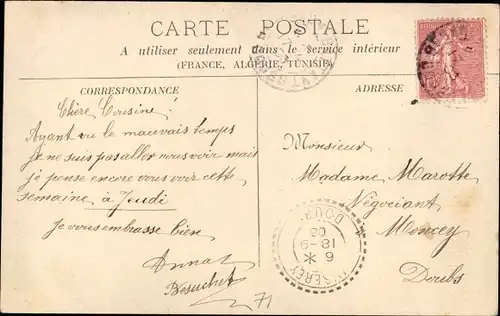 CARTE POSTALE
A utiliser seulement dans le service intérieur
(FRANCE, ALGÉRIE, TUNISIE)
CORRESPONDANCE
Chère Cousine!
Ayant vu le mauvais temps
je ne suis pas aller vous voir mais
je pense encore vous voir cette
semaine à Jeudi
Je vous embrasse bien
Anna
Besuchet
71
ADRESSE
Monsieur
Madame Marotte
Négociant
Moncey
Doubs
DOUBS
05
18-9
6